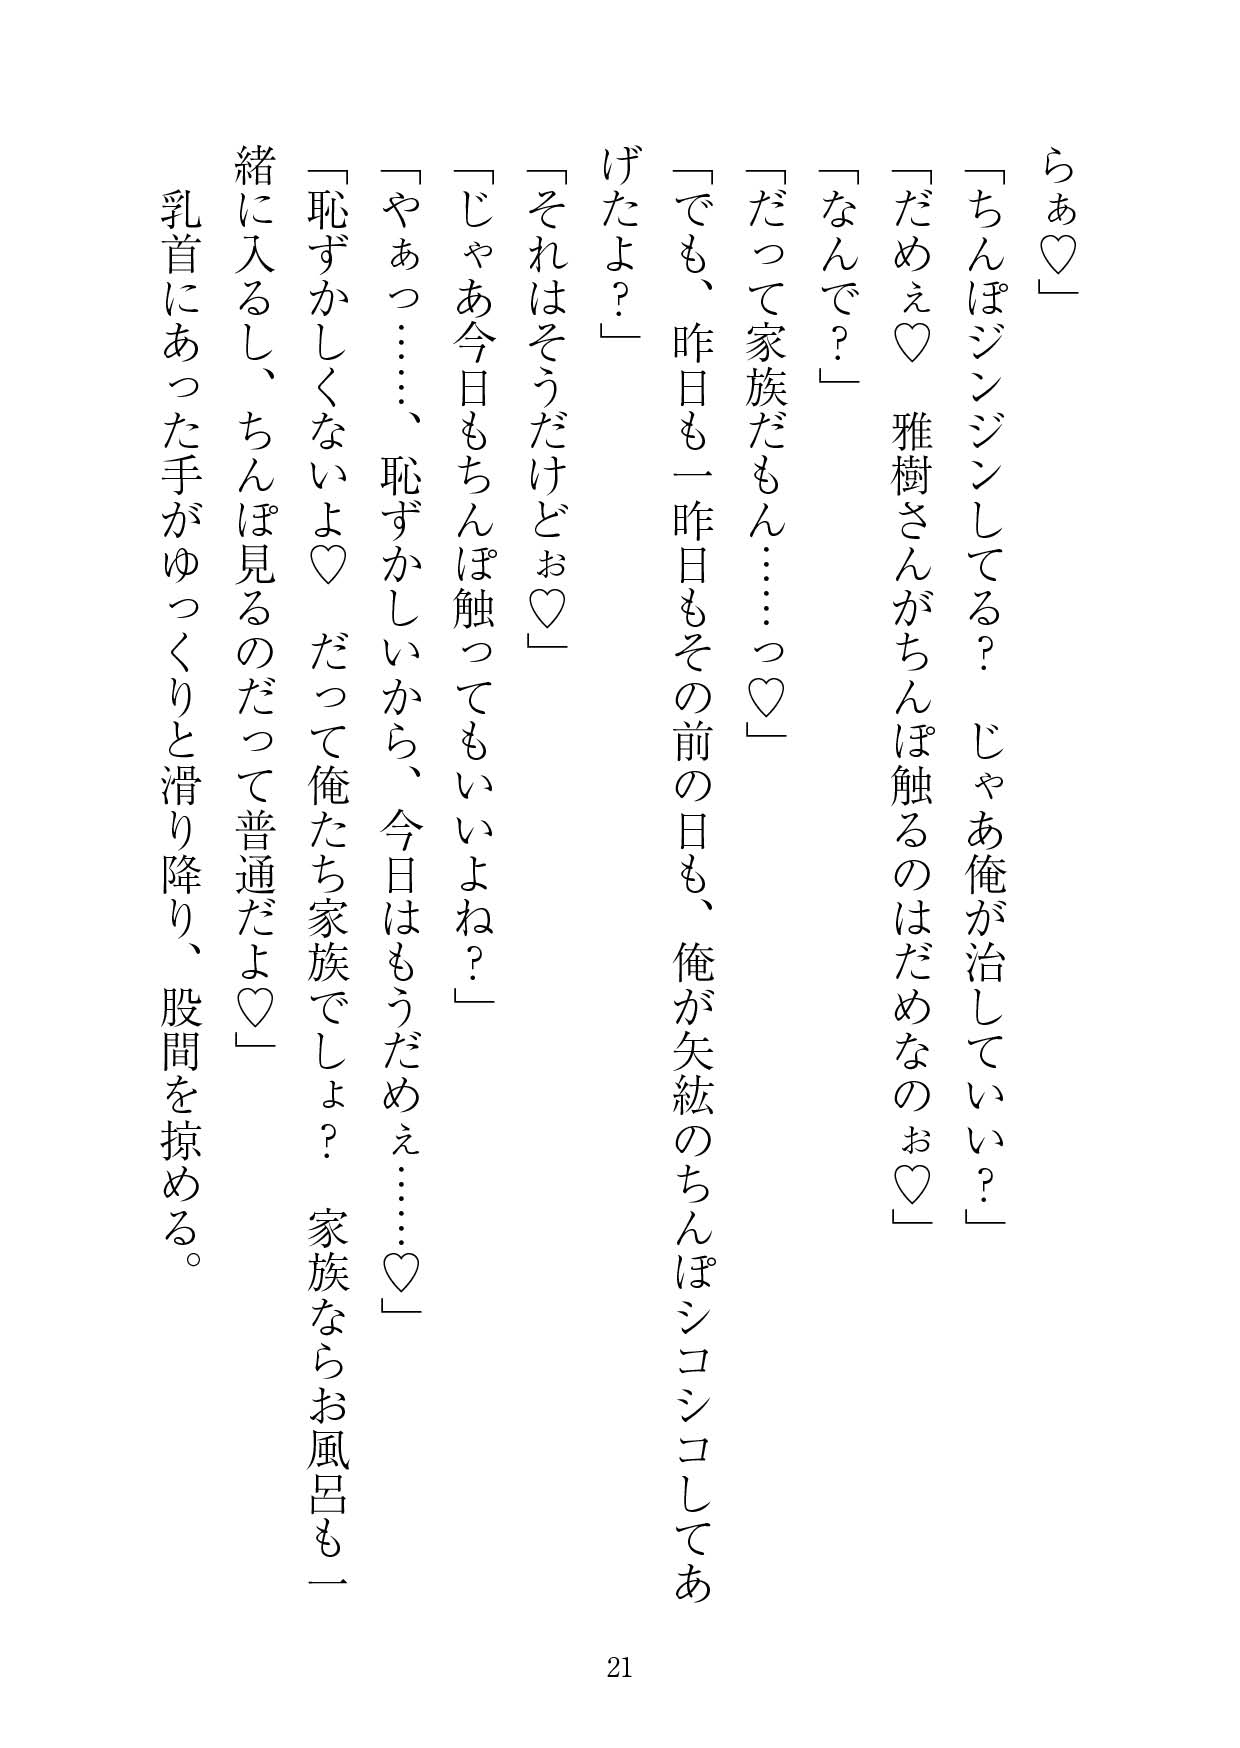 らぁ♡」
「ちんぽジンジンしてる？　じゃあ俺が治していい？」
「だめぇ♡　雅樹さんがちんぽ触るのはだめなのぉ♡」
「なんで？」
「だって家族だもん……っ♡」
「でも、昨日も一昨日もその前の日も、俺が矢紘のちんぽシコシコしてあ
げたよ？」
「それはそうだけどぉ♡」
「じゃあ今日もちんぽ触ってもいいよね？」
「やぁっ……、恥ずかしいから、今日はもうだめぇ……♡」
「恥ずかしくないよ♡　だって俺たち家族でしょ？　家族ならお風呂も一
緒に入るし、ちんぽ見るのだって普通だよ♡」
　乳首にあった手がゆっくりと滑り降り、股間を掠める。
21